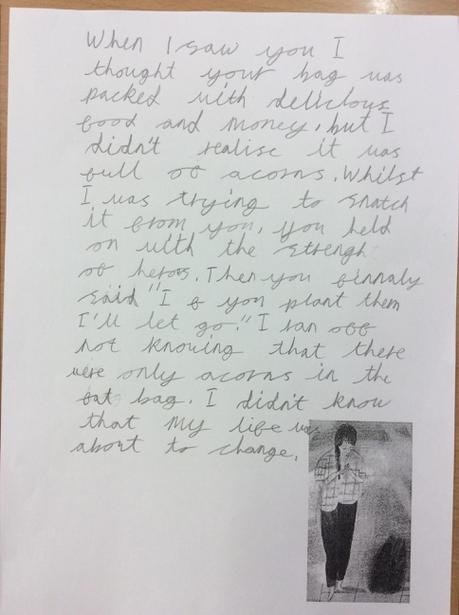 When I saw you I
thought your bag was
packed with delicious
food and money, but I
didn't realise it was
full of acorns. Whilst
I was trying to snatch
it from you, you held
on with the strenght
of heros. Then you finnaly
said "If you plant them
I'll let go." I ran off
not knowing that there
were only acorns in the
fat bag. I didn't know
that my life was
about to change.